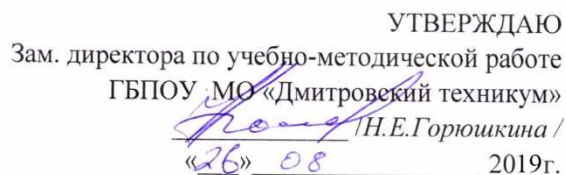 УТВЕРЖДАЮ
Зам. директора по учебно-методической работе
ГБПОУ МО «Дмитровский техникум»
/Н.Е.Горюшкина /
«26» 08 2019г.